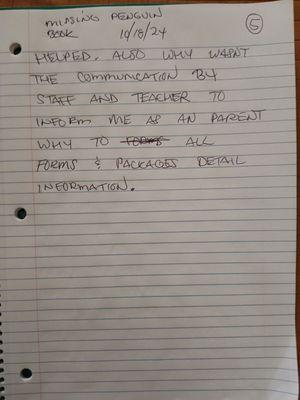 MISSING PENGUIN
BOOK 10/18/24
5
HELPED. ALSO WHY WASNT
THE COMMUNICATION BY
STAFF AND TEACHER TO
INFORM ME AS AN PARENT
WHY TO FORMS ALL
FORMS & PACKAGES DETAIL
INFORMATION.